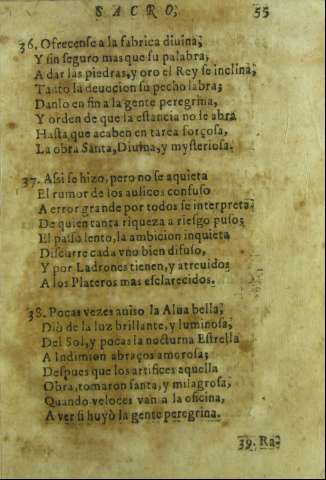 SACRO, 55
36. Ofrecense a la fabrica diuina;
Y sin seguro mas que su palabra;
A dar las piedras, y oro el Rey se inclina;
Tanto la deuocion su pecho labra;
Danlo en fin a la gente peregrina,
Y orden de que la estancia no se abra
Hasta que acaben en tarea forçosa,
La obra Santa, Diuina, y mysteriosa.
37. Assi se hizo, pero no se aquieta
El rumor de los aulicos confuso
A error grande por todos se interpreta;
De quien tanta riqueza a riesgo puso;
El passo lento, la ambicion inquieta
Discurre cada vno bien difuso,
Y por Ladrones tienen, y atreuidos
A los Plateros mas esclarecidos.
38. Pocas vezes auiso la Alua bella;
Dió de la luz brillante, y luminosa;
Del Sol, y pocas la nocturna Estrella
A Indimion abraços amorosa;
Despues que los artifices aquella
Obra, tomaron santa, y milagrosa,
Quando veloces van a la oficina,
A ver si huyò la gente peregrina.
39. Ra-